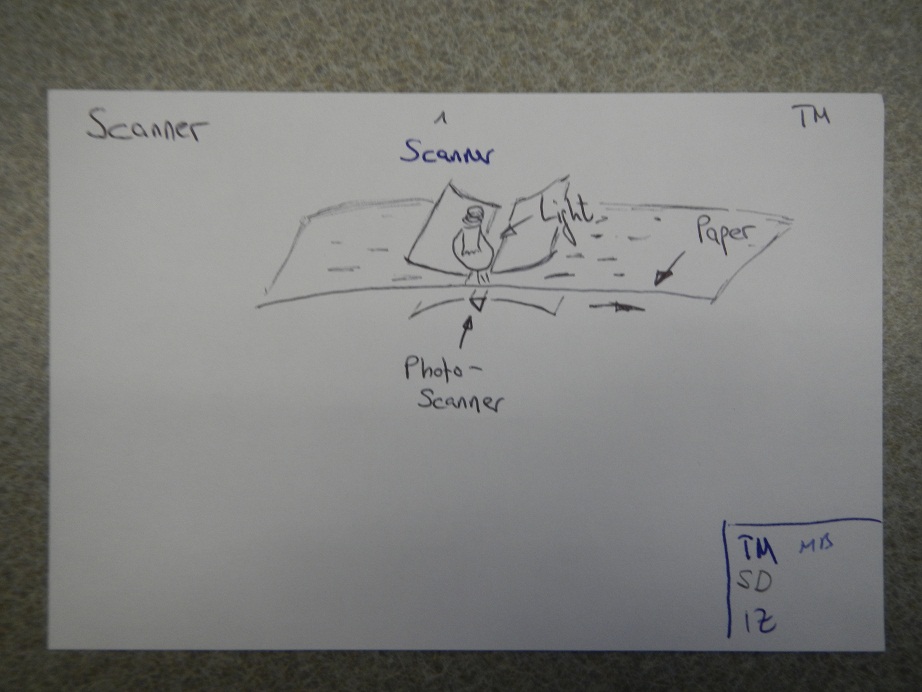 Scanner
1
TM
Scanner
Light
Paper
Photo-
Scanner
TM MB
SD
IZ